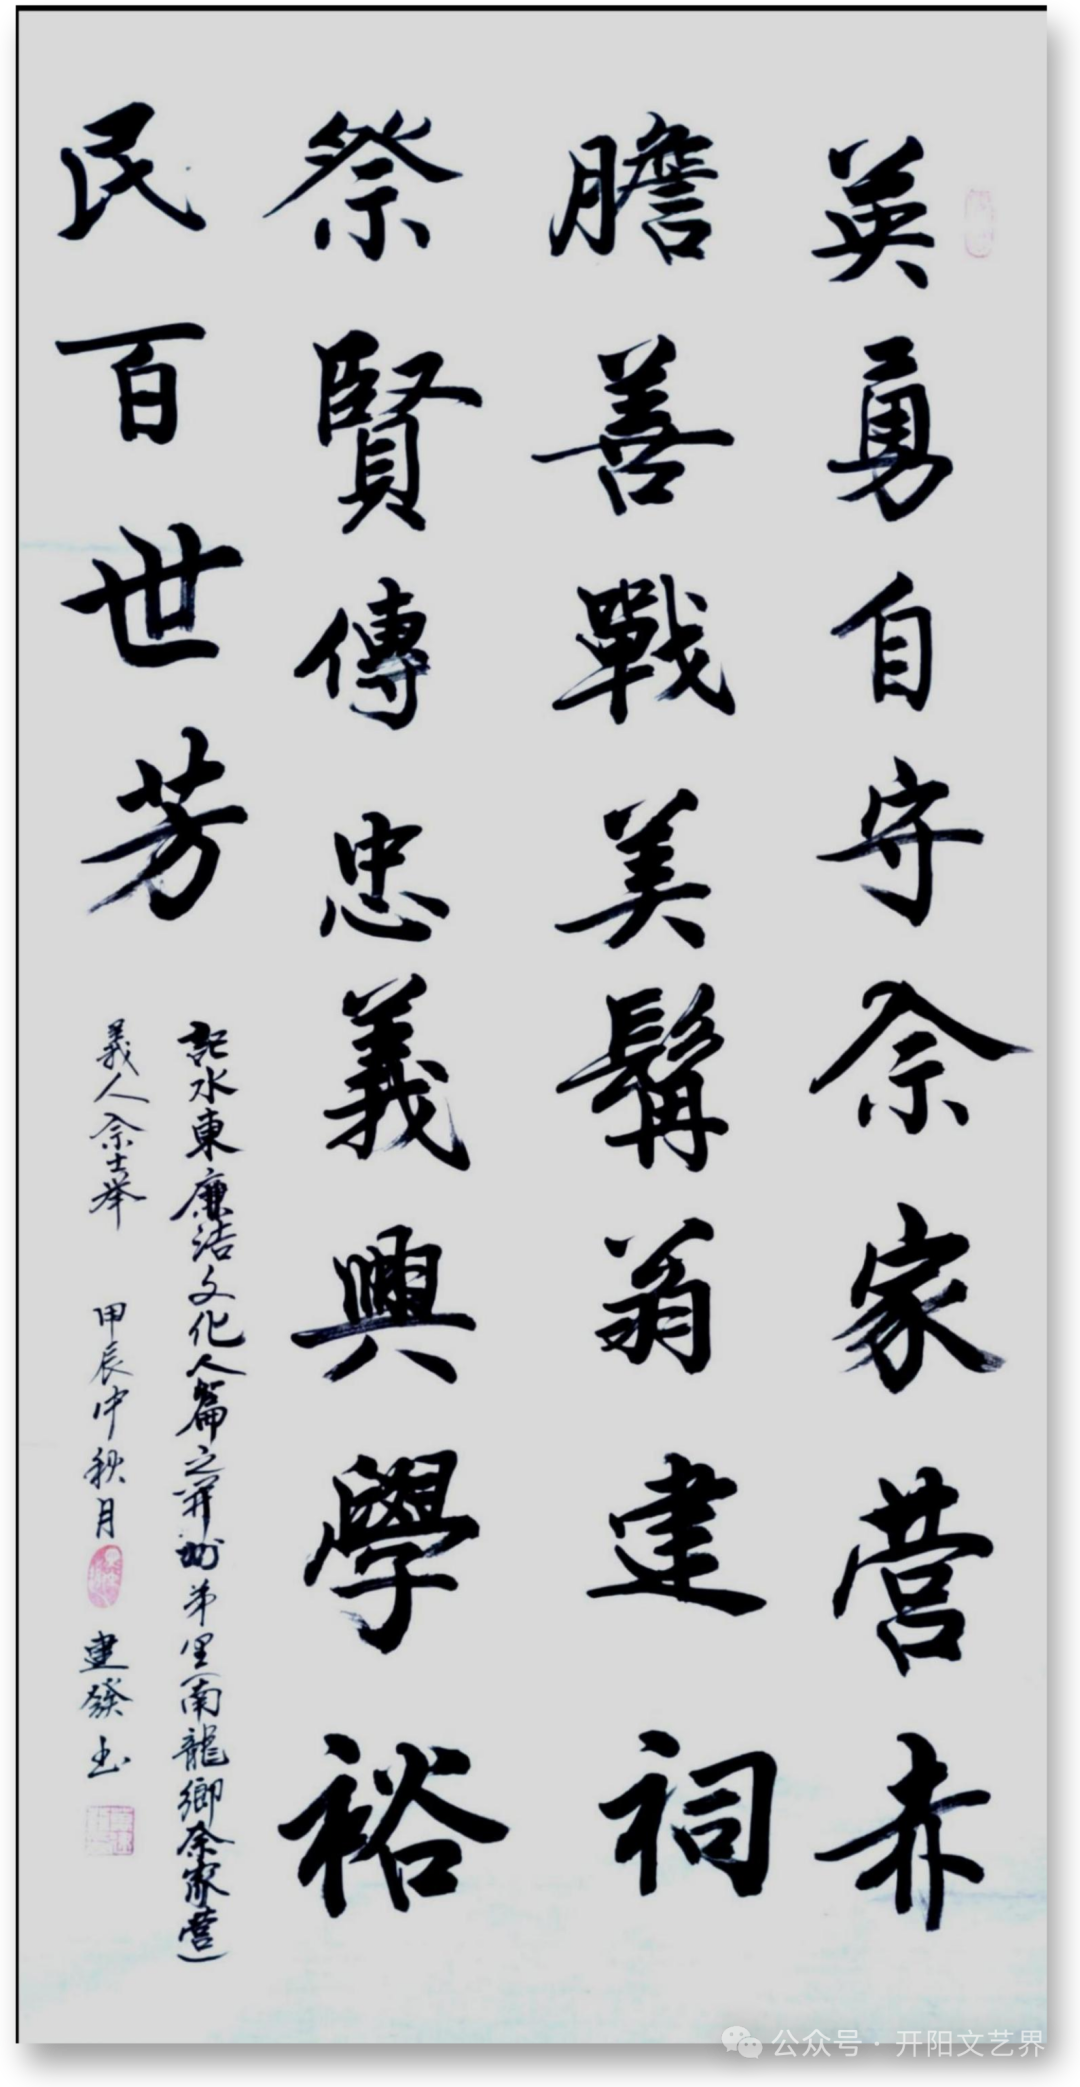 英勇自守佘家营赤
膽善戰美髯翁建祠
祭賢傳忠義興學裕
民百世芳
記水東廉洁文化人篇之开州弟里(南龍鄉佘家营)
義人佘士举 甲辰中秋月 建發书
公众号·开阳文艺界